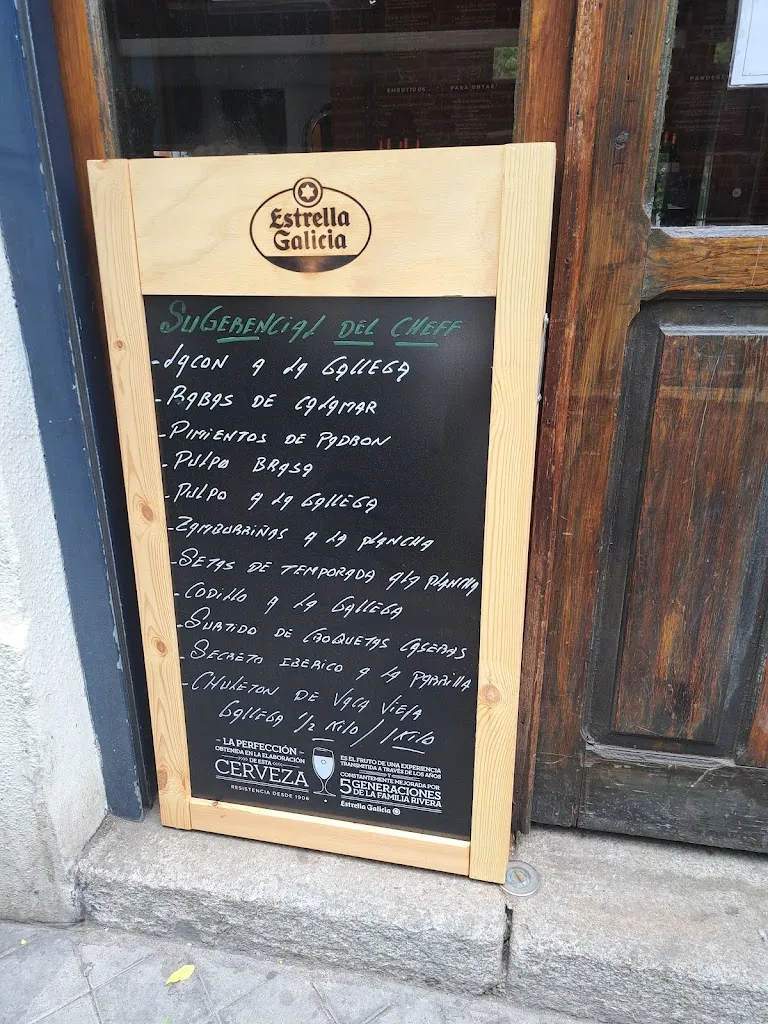 EMBUTIDOS PARA UNTAR
Estrella
Galicia
SUGERENCIAS DEL CHEFF
-LACON A LA GALLEGA
-RABAS DE CALAMAR
-PIMIENTOS DE PADRON
-PULPO BRASA
-PULPO A LA GALLEGA
-ZAMBURRIÑAS A LA PLANCHA
-SETAS DE TEMPORADA A LA PLANCHA
-CODILLO A LA GALLEGA
-SURTIDO DE CROQUETAS CASERAS
-SECRETO IBERICO A LA PARRILLA
-CHULETON DE VACA VIEJA
GALLEGA 1/2 KILO / 1 KILO
- LA PERFECCIÓN -
OBTENIDA EN LA ELABORACIÓN
DE ESTA
CERVEZA
RESISTENCIA DESDE 1906
ES EL FRUTO DE UNA EXPERIENCIA
TRANSMITIDA A TRAVÉS DE LOS AÑOS
Y
CONSTANTEMENTE MEJORADA POR
5 GENERACIONES
DE LA FAMILIA RIVERA
Estrella Galicia